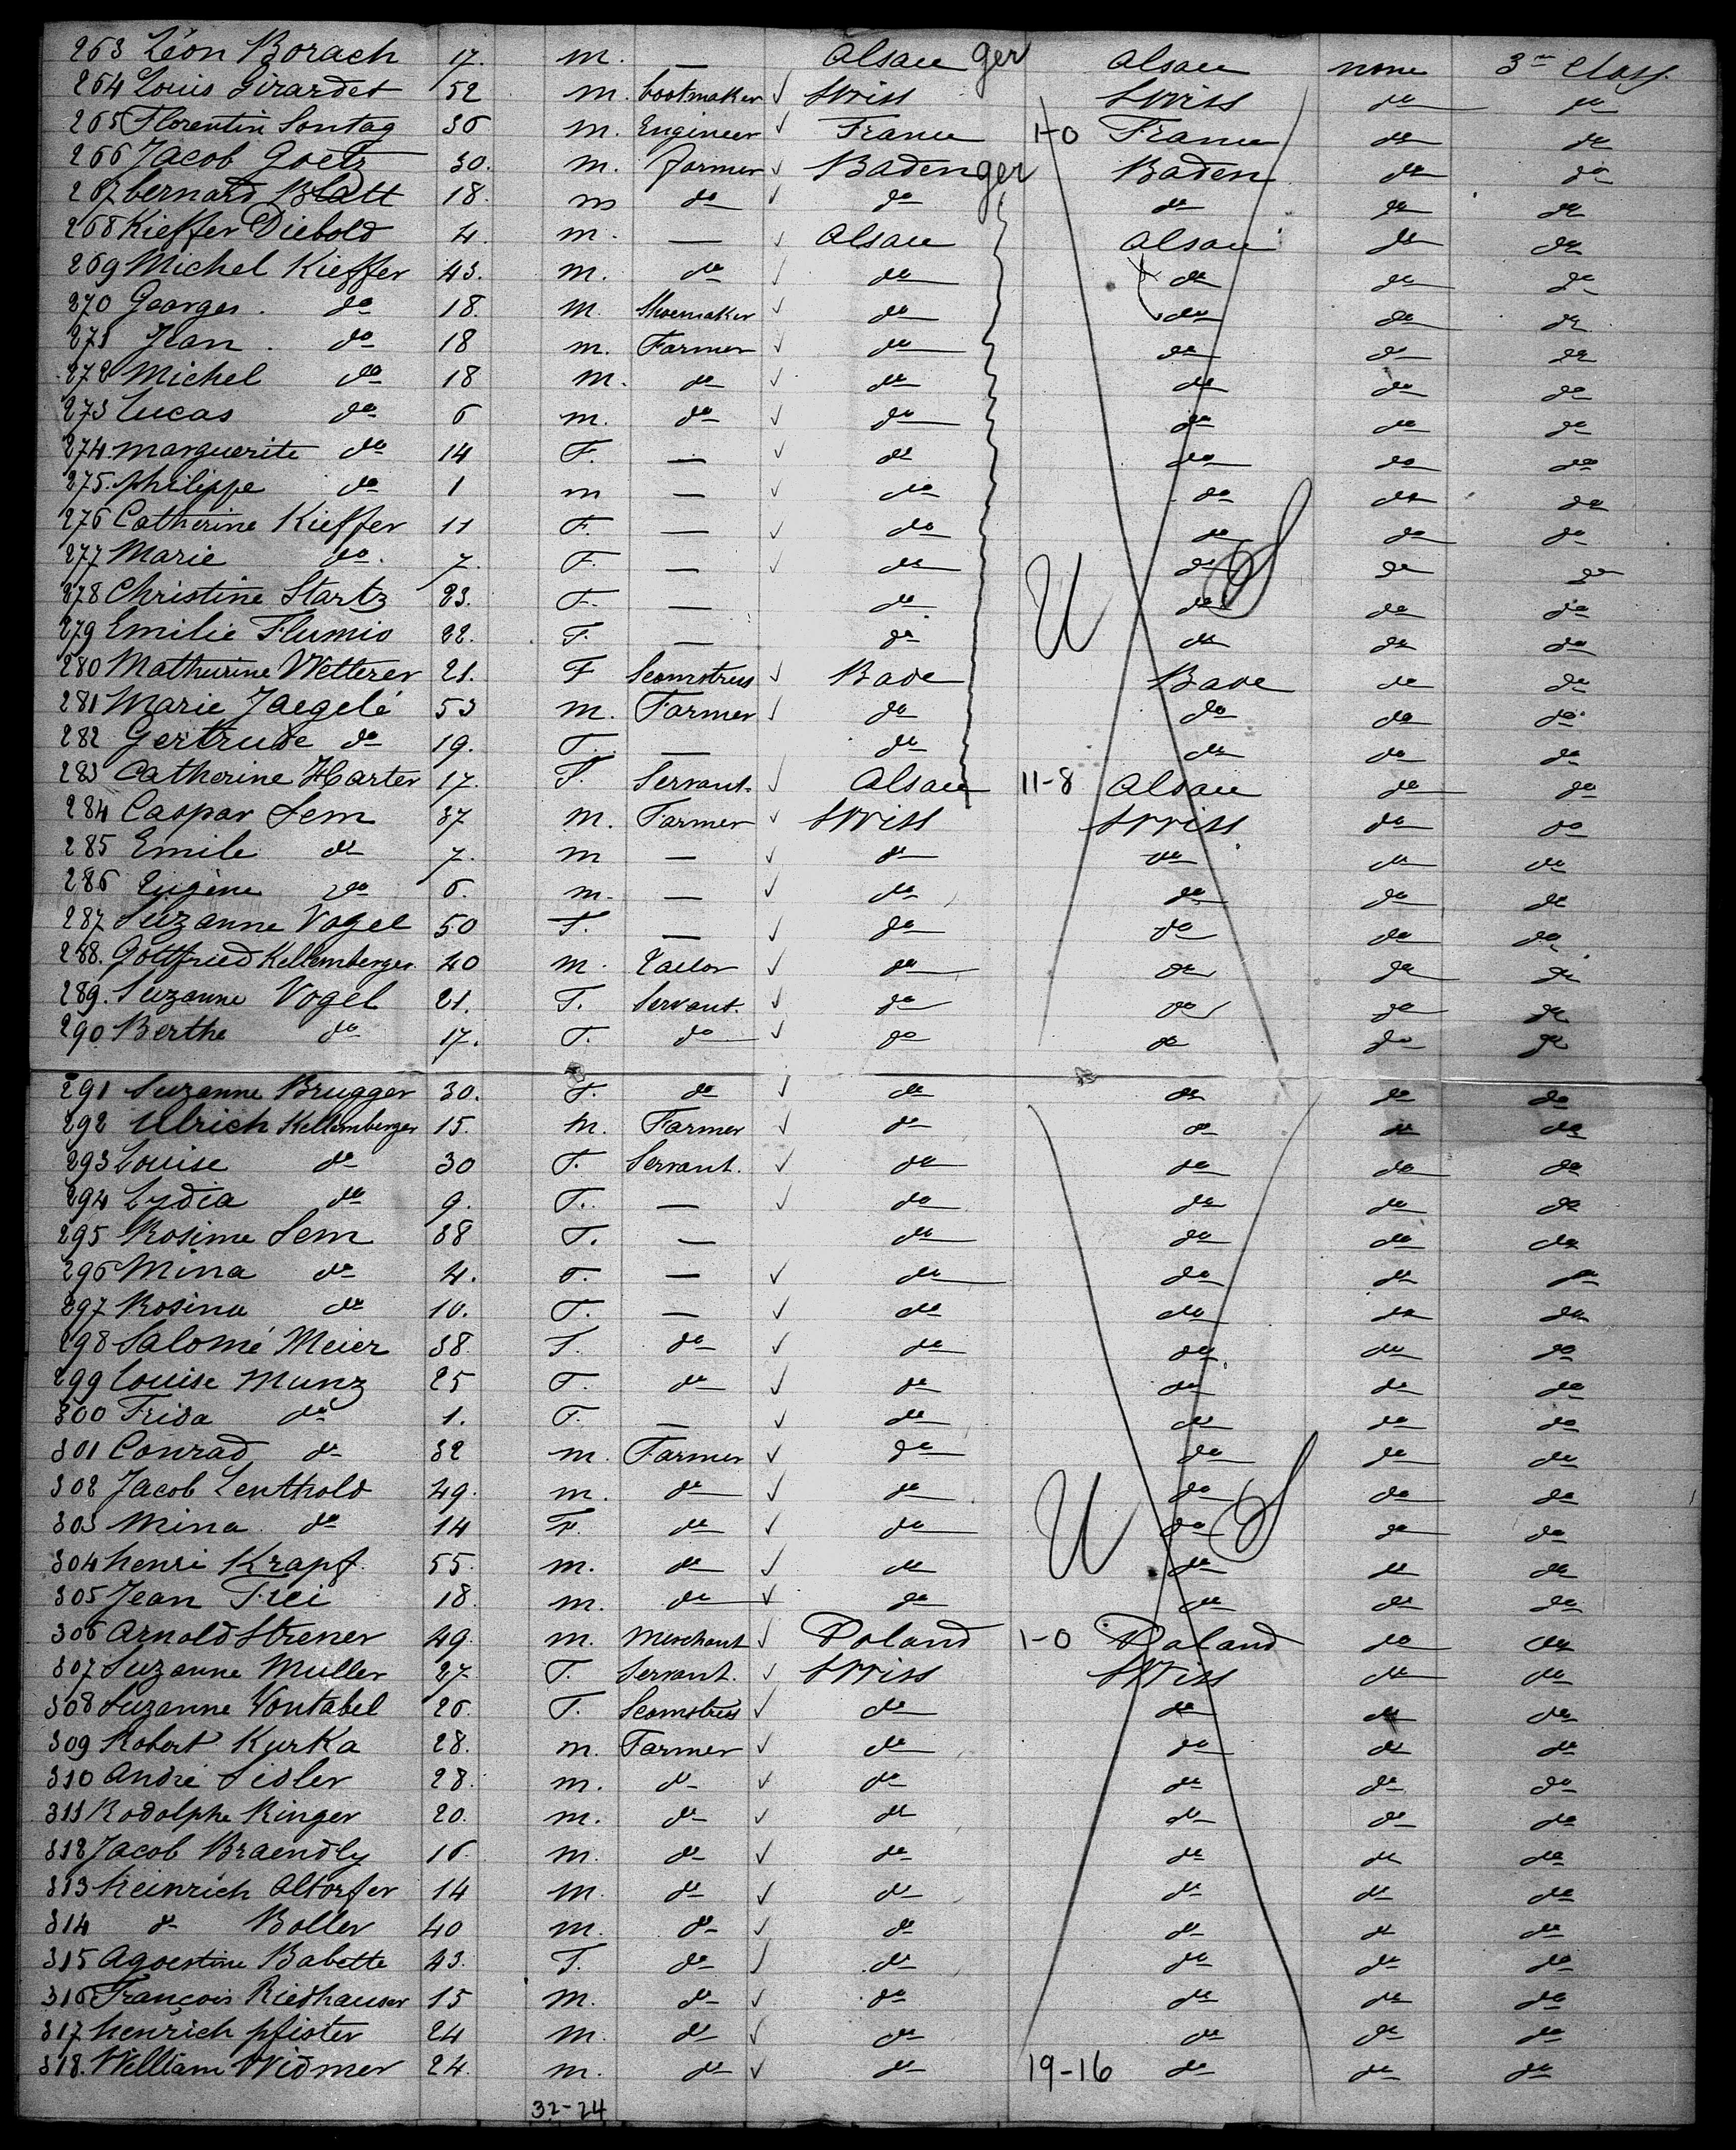 263 Léon Borach 17. m. — Alsace ger Alsace none 3rd Class
264 Louis Girardet 52 m. bootmaker ✓ Swiss Swiss do do
265 Florentin Sontag 36 m. Engineer ✓ France 1-0 France do do
266 Jacob Goetz 30. m. farmer ✓ Baden ger Baden do do
267 bernard Blatt 18. m do ✓ do do do do
268 Kieffer Diebold 4. m. — ✓ Alsace Alsace do do
269 Michel Kieffer 43. m. do ✓ do do do do
270 Georges. do 18. M. Shoemaker ✓ do do do do
271 Jean. do 18 m. Farmer ✓ do do do do
272 Michel do 18 m. do ✓ do do do do
273 Lucas do 6 m. do ✓ do do do do
274. marguerite do 14 F. — ✓ do do do do
275. philippe do 1 m — ✓ do do do do
276 Catherine Kieffer 11 F. — ✓ do do do do
277 Marie do. 7. F. — ✓ do U do S do do
278 Christine Startz 23. F. — do do do do
279 Emilie Flumio 22. F. — do do do do
280 Mathurine Wetterer 21. F Seamstress ✓ Bade Bade do do
281 Marie Jaegelé 53 m. Farmer ✓ do do do do
282 Gertrude do 19. F. — do do do do
283 Catherine Harter 17. F. Servant. ✓ Alsace 11-8 Alsace do do
284 Caspar Sem 37 m. Farmer ✓ Swiss Swiss do do
285 Emile do 7. m — ✓ do do do do
286 Eugène do 6. m. — ✓ do do do do
287 Suzanne Vogel 50 F. — ✓ do do do do
288. Gottfried Kellemberger. 40 m. Tailor ✓ do do do do
289. Suzanne Vogel 21. F. Servant. ✓ do do do do
290 Berthe do 17. F. do ✓ do do do do
291 Suzanne Brugger 30. F. do ✓ do do do do
292 Ulrich Kellemberger 15. m. Farmer ✓ do do do do
293 Louise do 30 F. Servant. ✓ do do do do
294 Lydia do 9. F. — ✓ do do do do
295 Rosime Sem 38 F. — do do do do
296 Mina do 4. F. — ✓ do do do do
297 Rosina do 10. F. — ✓ do do do do
298 Salomé Meier 38. F. do ✓ do do do do
299 Louise Munz 25 F. do ✓ do do do do
300 Frida do 1. F. — ✓ do do do do
301 Conrad do 32 m. Farmer ✓ do do do do
302 Jacob Lenthold 49. m. do ✓ do do do do
303 Mina. do 14 F. do ✓ do U do S do do
304 henri Krapf. 55. m. do ✓ do do do do
305 Jean Frei 18. m. do ✓ do do do do
306 Arnold Strener 49. m. Merchant ✓ Poland 1-0 Poland do do
307 Suzanne Muller 27. F. Servant. ✓ Swiss Swiss do do
308 Suzanne Vontabel 26. F. Seamstress ✓ do do do do
309 Robert Kurka 28. m. Farmer ✓ do do do do
310 André Sidler 28. m. do ✓ do do do do
311 Rodolphe Ringer 20. m. do ✓ do do do do
312 Jacob Braendly 16. m. do ✓ do do do do
313 heinrich Altorfer 14 m. do ✓ do do do do
314 do Boller 40 m. do ✓ do do do do
315 Agoestine Babette 43. F. do ✓ do do do do
316 François Riedhauser 15 m. do ✓ do do do do
317 henrich pfister 24 m. do ✓ do do do do
318. William Widmer 24. m. do ✓ do 19-16 do do do
32-24